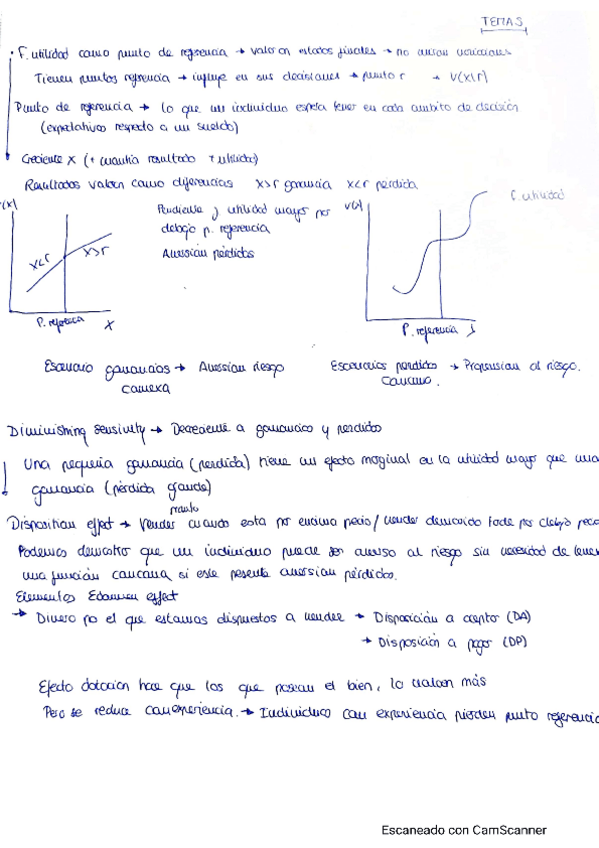 TEMA 3
· F. utilidad como punto de referencia → valoran estados finales → no miran variaciones
Tienen puntos referencia → influye en sus decisiones → punto r → V(x|r)
Punto de referencia → lo que un individuo espera tener en cada ámbito de decisión
(expectativas respecto a un sueldo)
Creciente x (+ cuantía resultado + utilidad)
Resultados valoran como diferencias x>r ganancia x<r perdida
V(x)
x<r
x>r
P. referencia
X
Pendiente f utilidad mayor por
debajo p. referencia
Aversión pérdidas
V(x)
F. utilidad
P. referencia
Escenario ganancias → Aversión riesgo
Escenarios perdidas → Propensión al riesgo.
Diminishing sensivity → Decreciente a ganancias y perdidas
Una pequeña ganancia (perdida) tiene un efecto marginal en la utilidad mayor que una
ganancia (pérdida grande)
pronto
Disposition effect → Vender cuando esta por encima precio / vender demasiado tarde por debajo
Podemos demostrar que un individuo puede ser averso al riesgo sin necesidad de tener
una función concava si este presenta aversión pérdidas.
Elementos effect
→ Dinero por el que estamos dispuestos a vender → Disposición a aceptar (DA)
→ Disposición a pagar (DP)
Efecto dotacion hace que los que posean el bien, lo valoren más
Pero se reduce con experiencia. → Individuos con experiencia pierden punto referencia
Escaneado con CamScanner